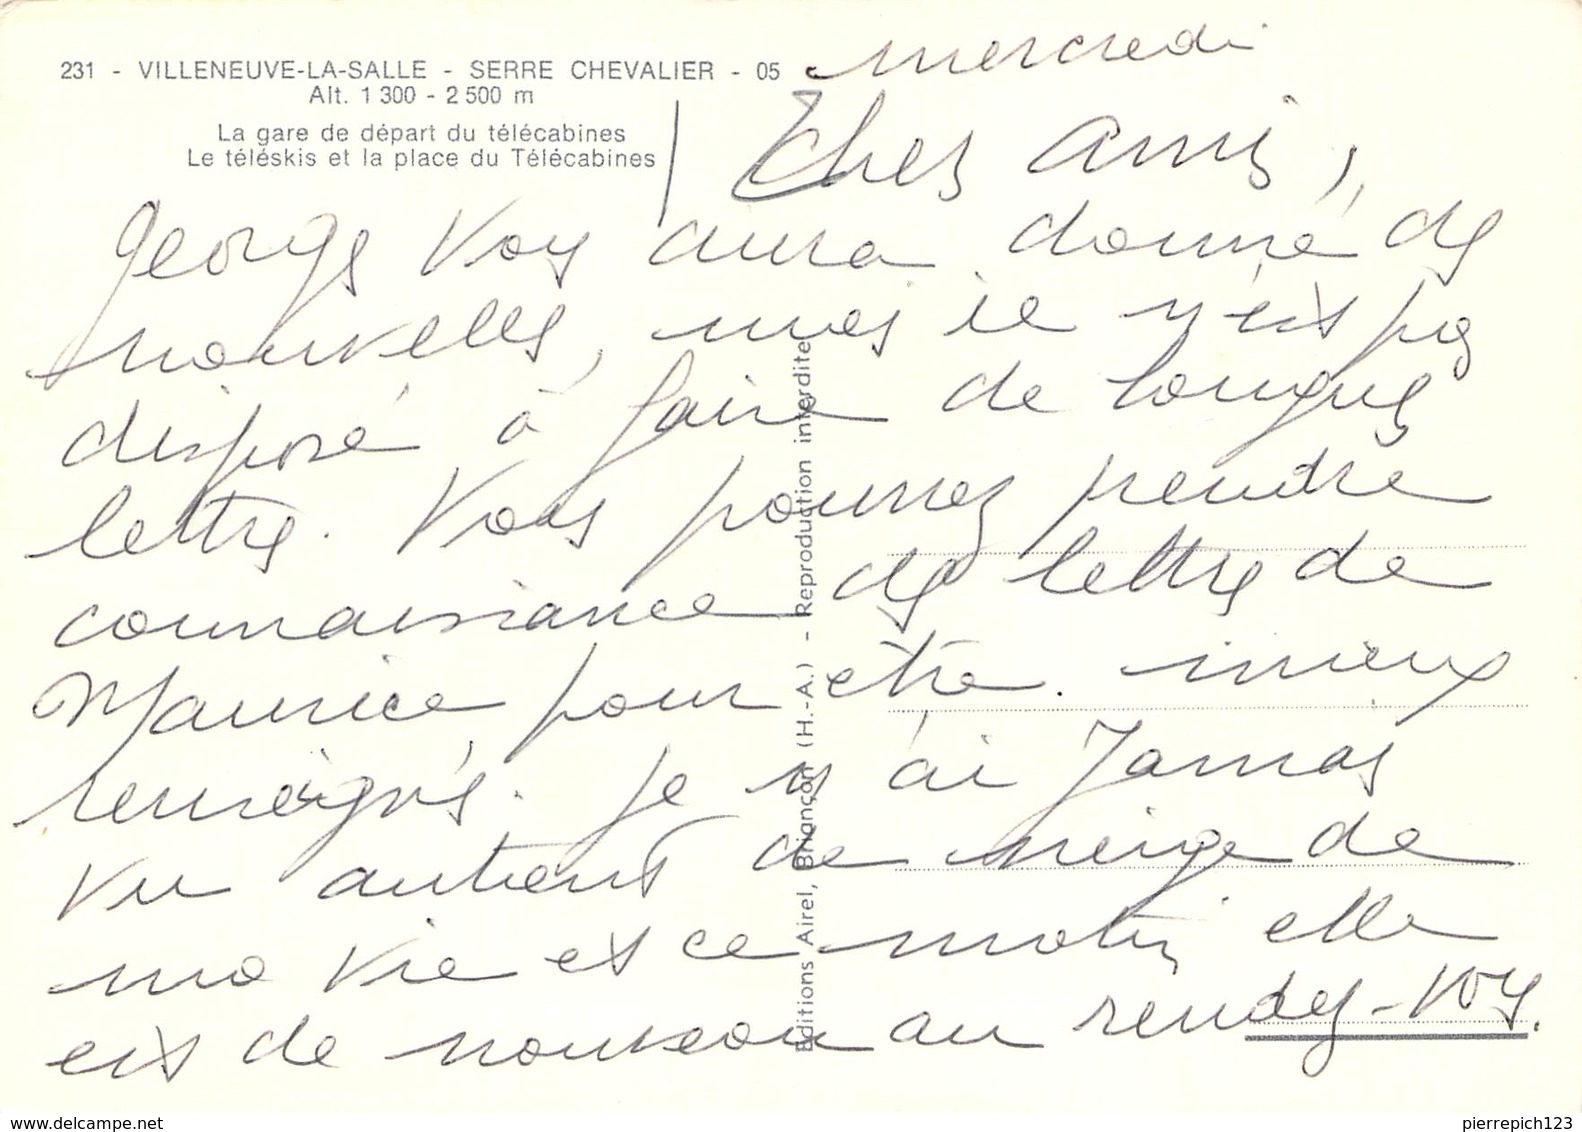 231 - VILLENEUVE-LA-SALLE - SERRE CHEVALIER - 05
Alt. 1 300 - 2 500 m
La gare de départ du télécabines
Le téléskis et la place du Télécabines
mercredi
Chers amis,
Georges vous aura donné des
nouvelles, mais je n'est pas
disposé à faire de longues
lettres. Vous pourrez prendre
connaissance des lettres de
Maurice pour être mieux
renseignés. Je n'ai jamais
vu autant de neige de
ma vie et ce matin elle
est de nouveau au rendez-vous.
Editions Airel, Briançon (H.-A.) - Reproduction interdite
www.delcampe.net
pierrepich123